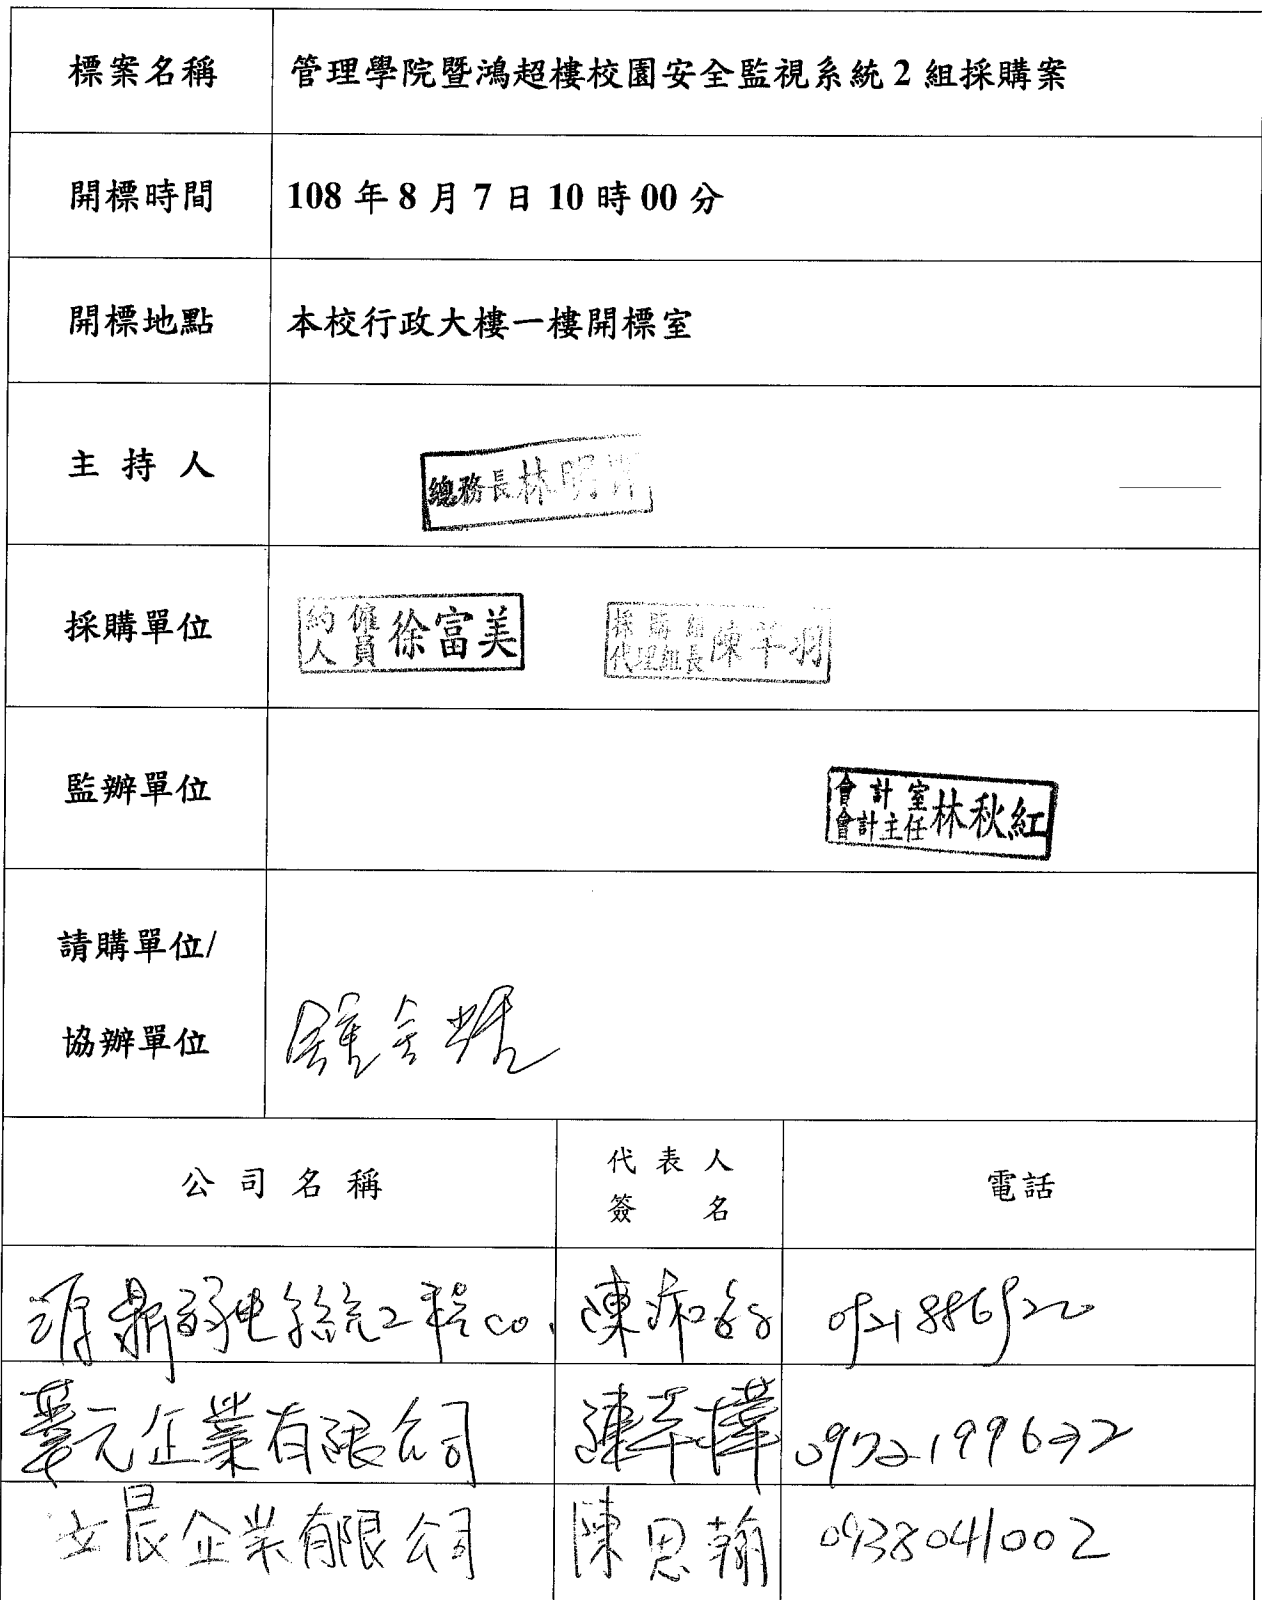 標案名稱 管理學院暨鴻超樓校園安全監視系統 2 組採購案
開標時間 108 年 8 月 7 日 10 時 00 分
開標地點 本校行政大樓一樓開標室
主 持 人 總務長林明
採購單位 約僱人員徐富美 採購組代理組長陳芊羽
監辦單位 會計室會計主任林秋紅
請購單位/
協辦單位
公 司 名 稱 代 表 人 簽 名 電話
鼎弱电系統工程co. 陳
元企業有限公司 陳芊樺
立晨企業有限公司 陳思翰 0938041002